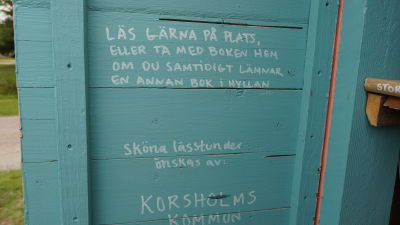 LÄS GÄRNA PÅ PLATS,
ELLER TA MED BOKEN HEM
OM DU SAMTIDIGT LÄMNAR
EN ANNAN BOK I HYLLAN
Sköna lässtunder
önskas av:
KORSHOLMS
KOMMUN
STOR